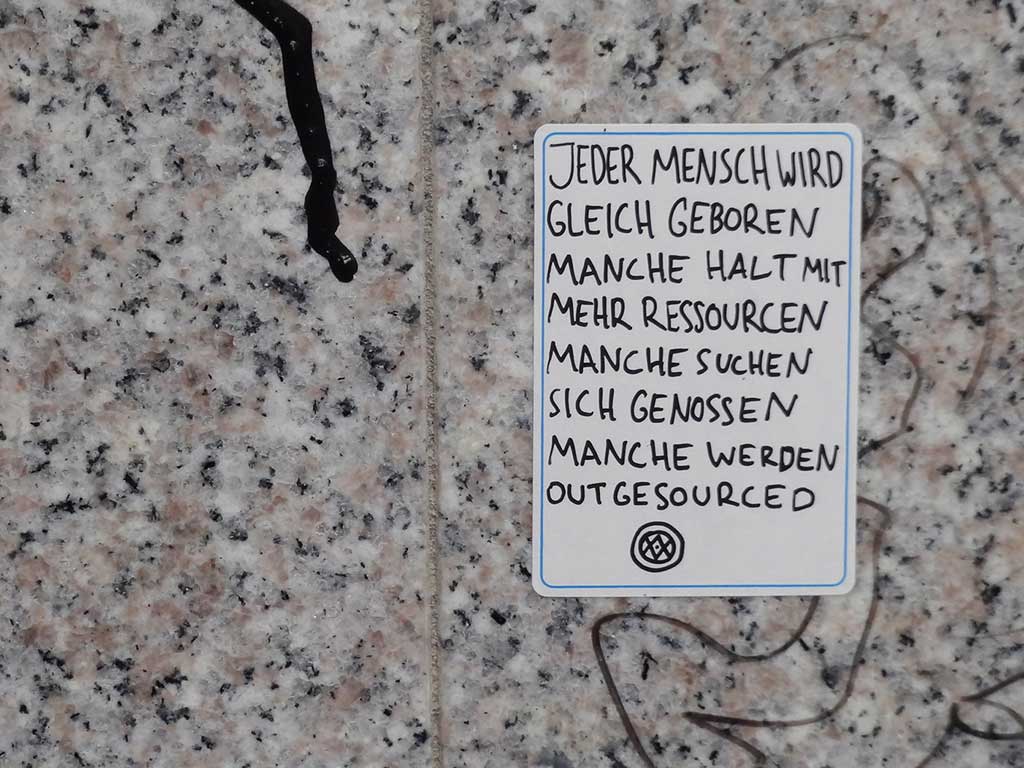 JEDER MENSCH WIRD
GLEICH GEBOREN
MANCHE HALT MIT
MEHR RESSOURCEN
MANCHE SUCHEN
SICH GENOSSEN
MANCHE WERDEN
OUTGESOURCED